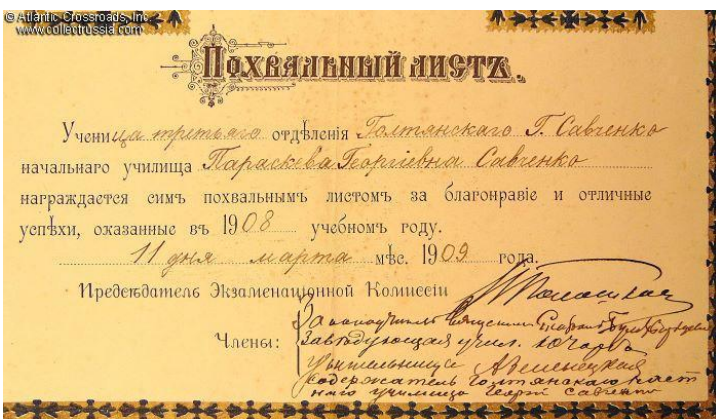 © Atlantic Crossroads, Inc.
www.collectrussia.com
Похвальный листъ.
Ученица третьяго отдѣленія Голтянскаго Г. Савченко
начальнаго училища Параскева Георгіевна Савченко
награждается симъ похвальнымъ листомъ за благонравіе и отличные
успѣхи, оказанные въ 1908 учебномъ году.
11 дня марта мѣс. 1909 года.
Предсѣдатель Экзаменаціонной Комиссіи
Законоучитель Священник
Члены: Завѣдующая учил.
Учительница
Содержатель голтянскаго част
наго училища Георгій Савченко